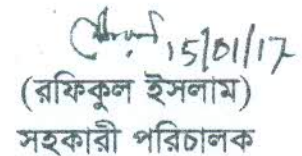 15/01/17
(রফিকুল ইসলাম)
সহকারী পরিচালক